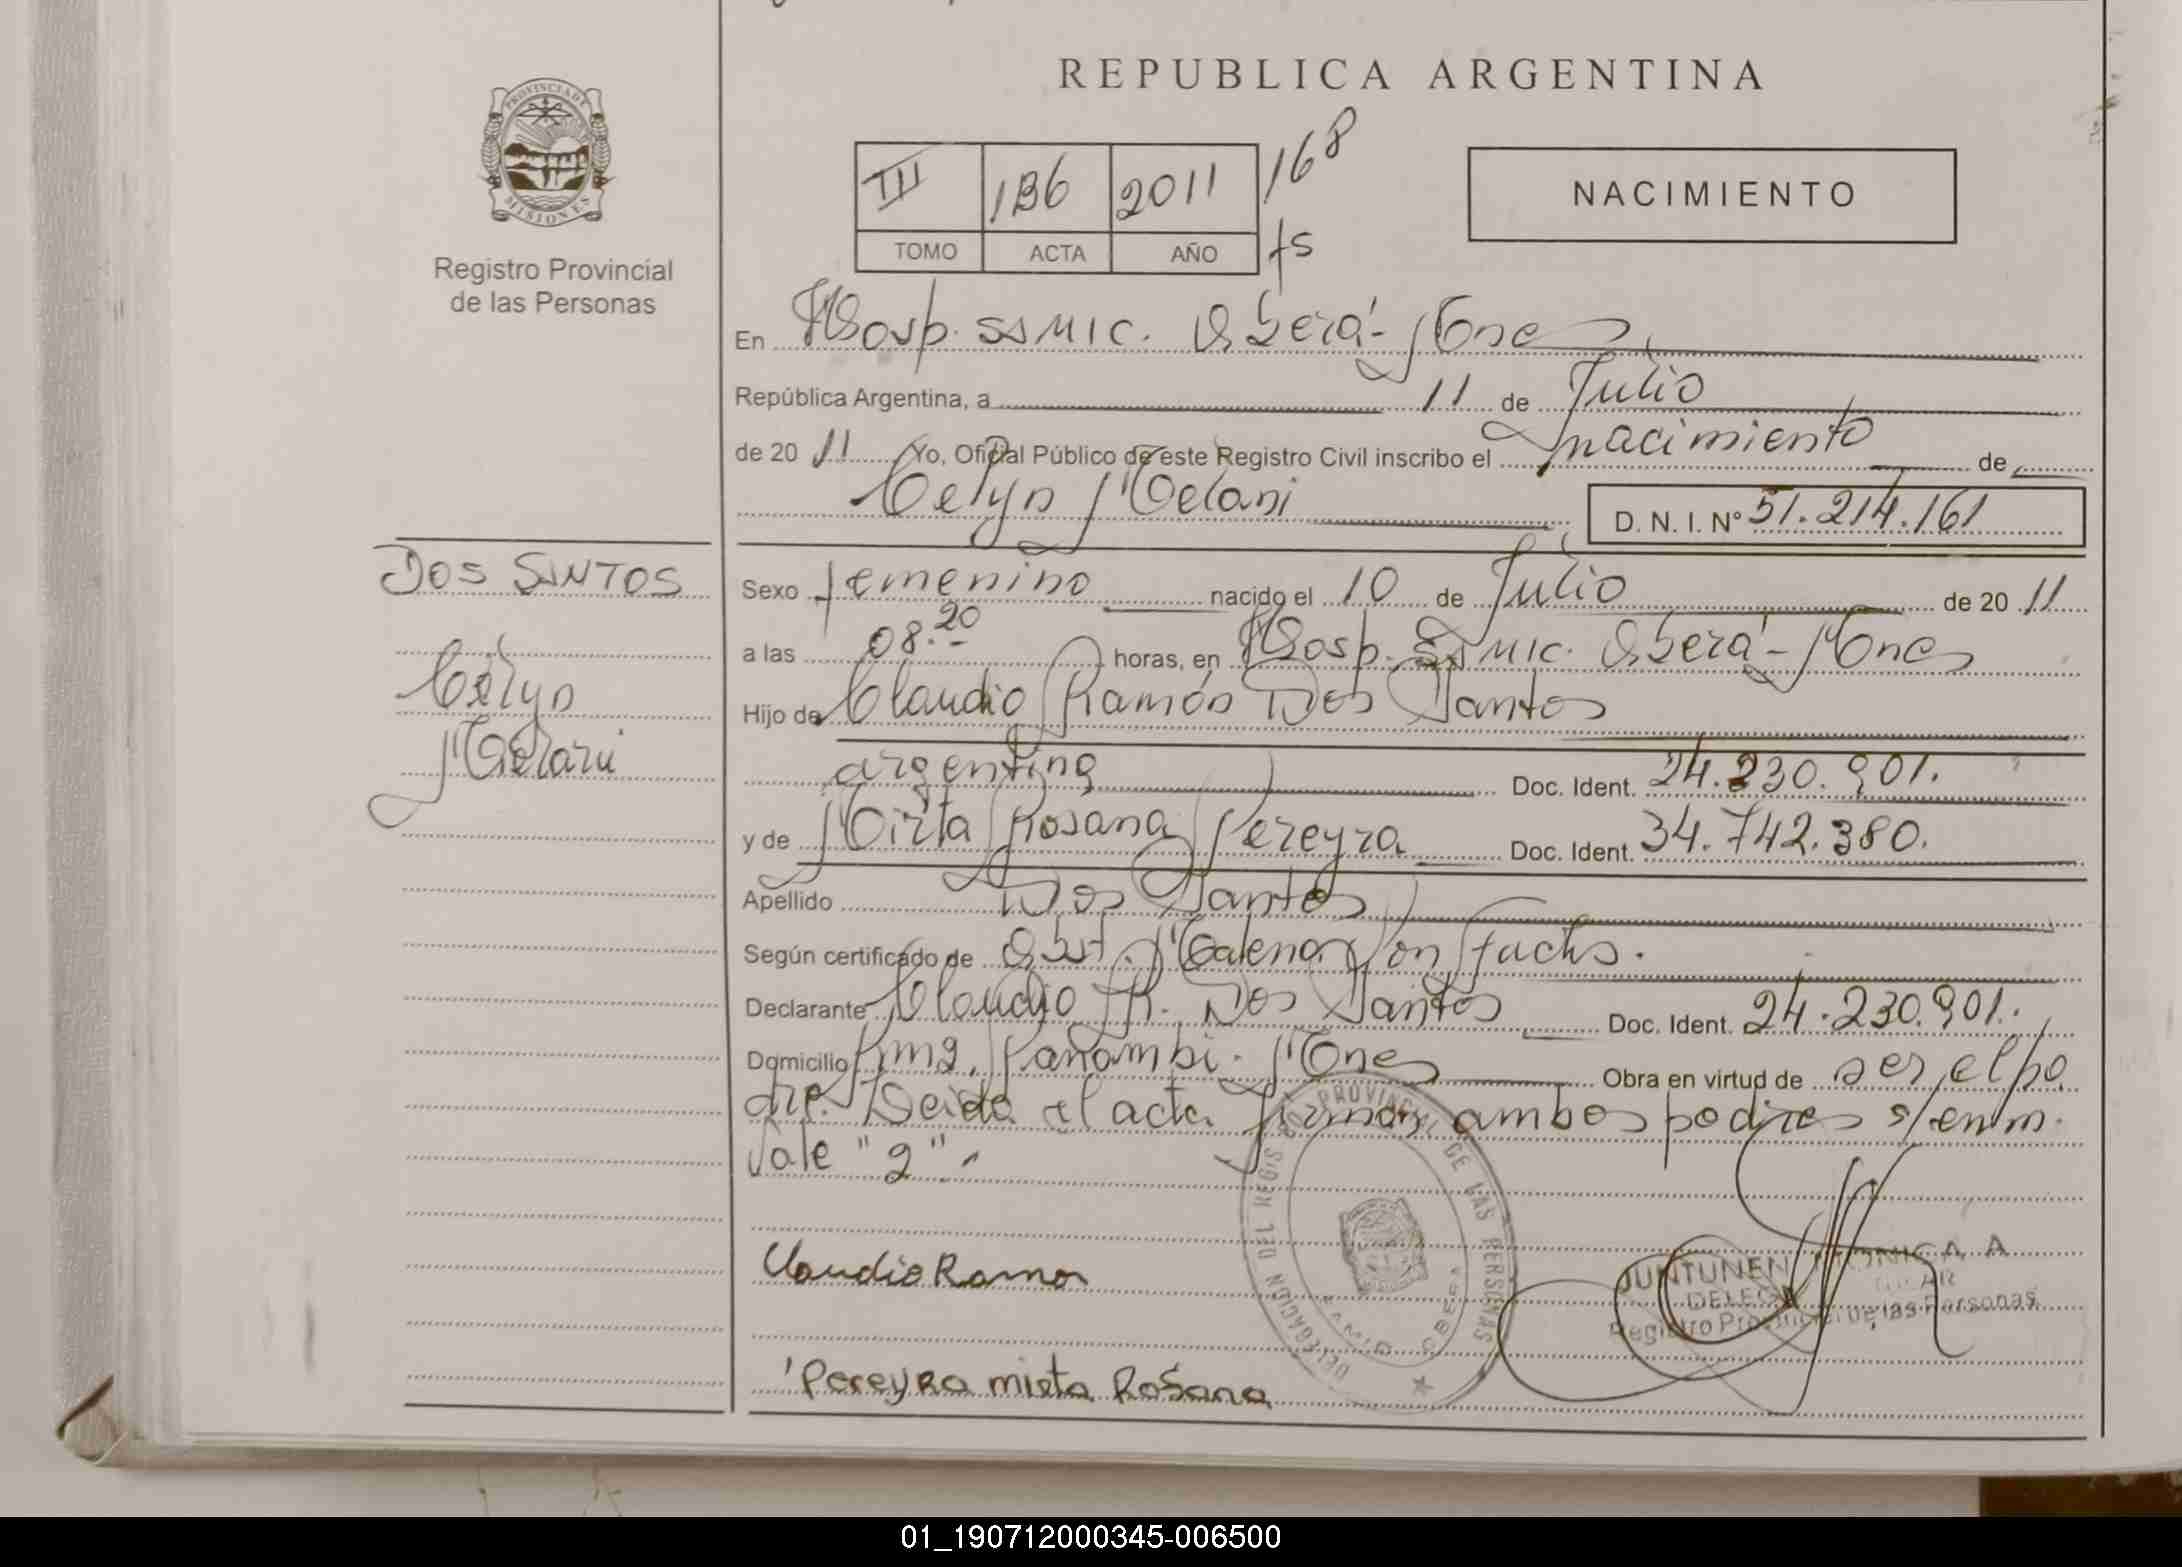 REPUBLICA ARGENTINA
PROVINCIA DE
MISIONES
Registro Provincial
de las Personas
III 136 2011 168
TOMO ACTA AÑO fs
NACIMIENTO
En Hosp. SAMIC. Oberá - Mnes
República Argentina, a 11 de Julio
de 20 11 Yo, Oficial Público de este Registro Civil inscribo el nacimiento de
Celyn Melani D. N. I. Nº 51.214.161
DOS SANTOS
Celyn
Melani
Sexo femenino nacido el 10 de Julio de 20 11
a las 08.20 horas, en Hosp. SAMIC. Oberá - Mnes
Hijo de Claudio Ramón Dos Santos
argentina Doc. Ident. 24.230.901.
y de Mirta Rosana Pereyra Doc. Ident. 34.742.380.
Apellido Dos Santos
Según certificado de Obst. Malena Von Fuchs.
Declarante Claudio R. Dos Santos Doc. Ident. 24.230.901.
Domicilio Km 2, Panambi - Mnes Obra en virtud de ser el pa
dre. Leida el acta firman ambos padres s/enm.
Vale "2".
Claudio Ramon
Pereyra mirta Rosana
DELEGACION DEL REGISTRO PROVINCIAL DE LAS PERSONAS
SAMIC OBERA
JUNTUNEN MONICA A
Registro Provincial de las Personas
01_190712000345-006500